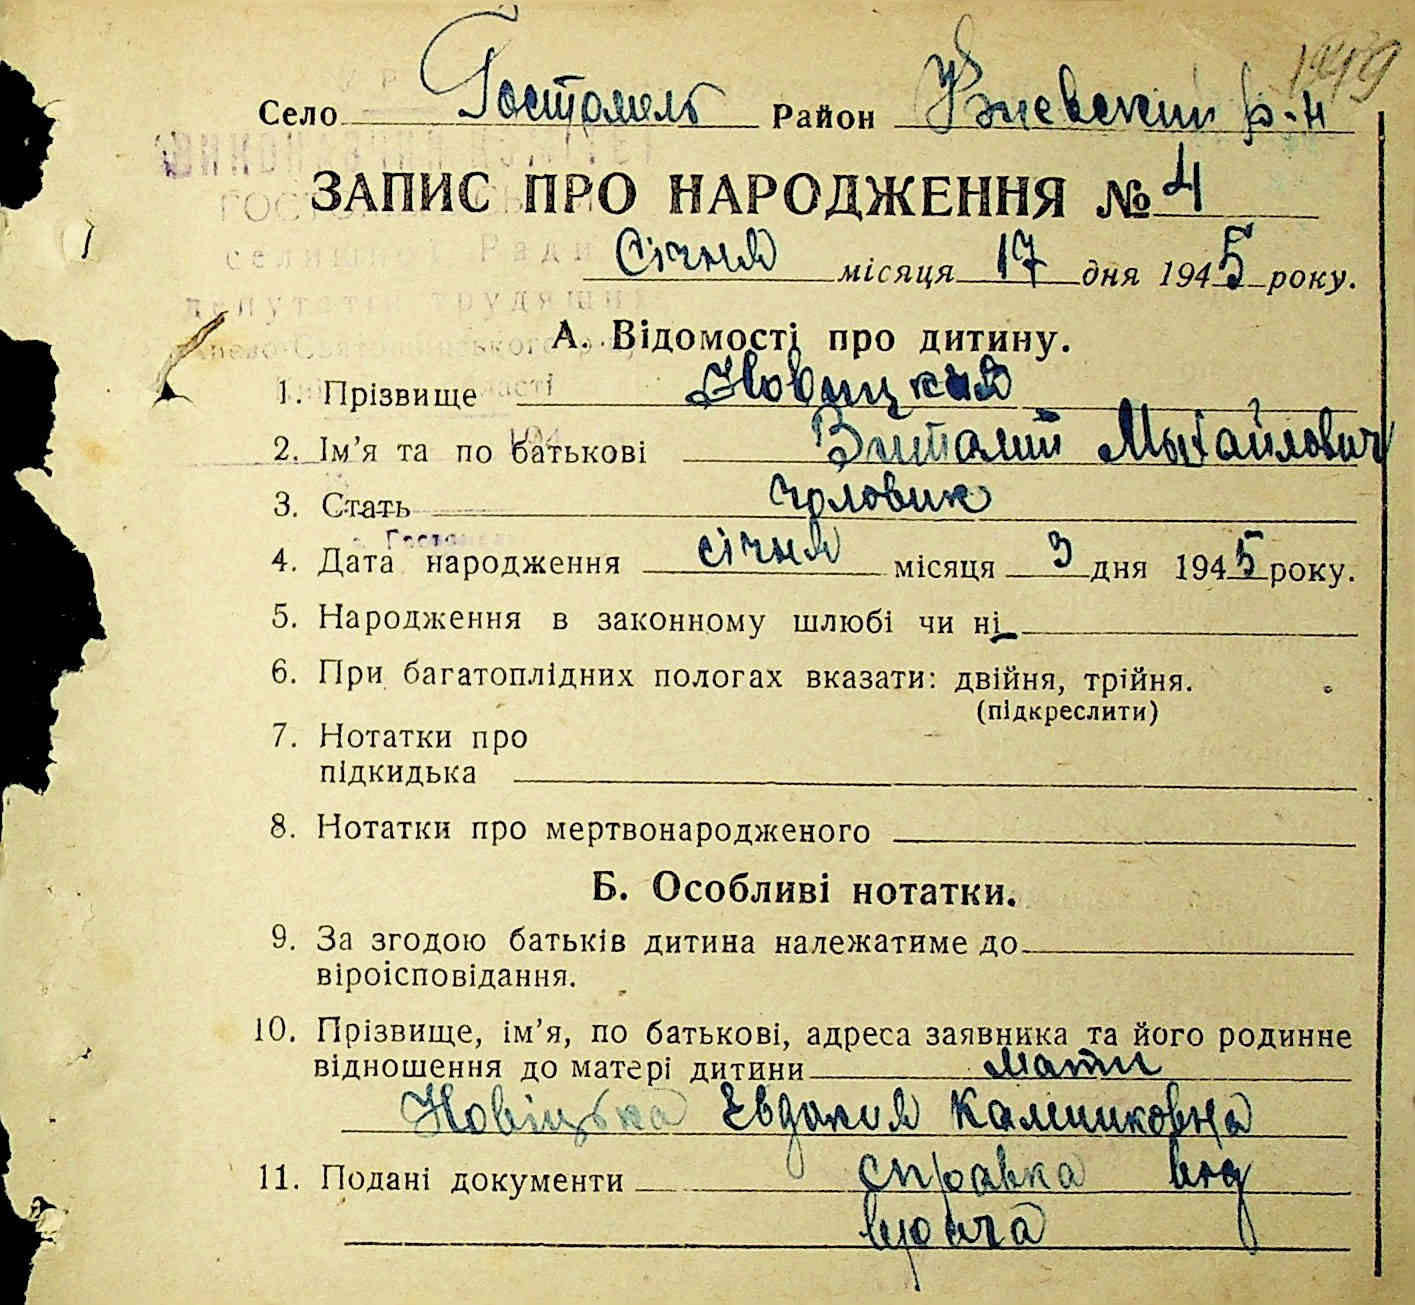 Село Гостомель Район Києвский р-н
ЗАПИС ПРО НАРОДЖЕННЯ № 4
Січня місяця 17 дня 1945 року.
А. Відомості про дитину.
1. Прізвище Новицкий
2. Ім’я та по батькові Виталий Михайлович
3. Стать чоловик
4. Дата народження січня місяця 3 дня 1945 року.
5. Народження в законному шлюбі чи ні
6. При багатоплідних пологах вказати: двійня, трійня.
(підкреслити)
7. Нотатки про
підкидька
8. Нотатки про мертвонародженого
Б. Особливі нотатки.
9. За згодою батьків дитина належатиме до
віроісповідання.
10. Прізвище, ім’я, по батькові, адреса заявника та його родинне
відношення до матері дитини мати
Новіцька Евдокия
11. Подані документи справка вид
врача